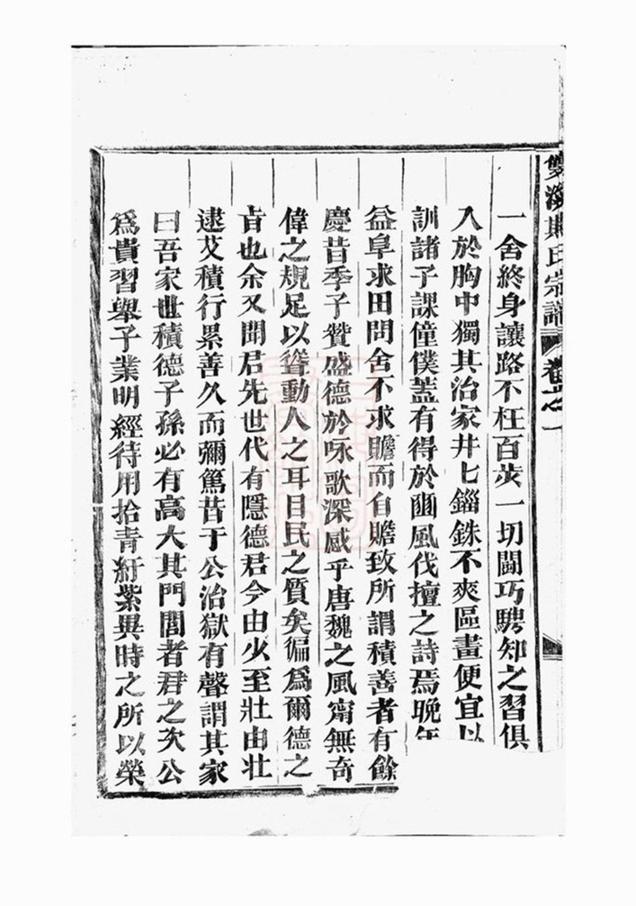 氏宗譜 卷之一
一舍終身讓路不枉百步一切鬪巧騁知之習俱
入於胸中獨其治家井匕錙銖不爽區畫便宜以
訓諸子課僮僕蓋有得於豳風伐檀之詩焉晚年
益阜求田問舍不求贍而自贍致所謂積善者有餘
慶昔季子贊盛德於咏歌深感乎唐魏之風甯無奇
偉之規足以聳動人之耳目民之質矣徧爲爾德之
㫖也余又聞君先世代有隱德君今由火至壯由壯
逮艾積行累善久而彌篤昔于公治獄有聲謂其家
曰吾家世積德子孫必有高大其門閭者君之次公
爲貴習舉子業明經待用拾青紆紫異時之所以榮